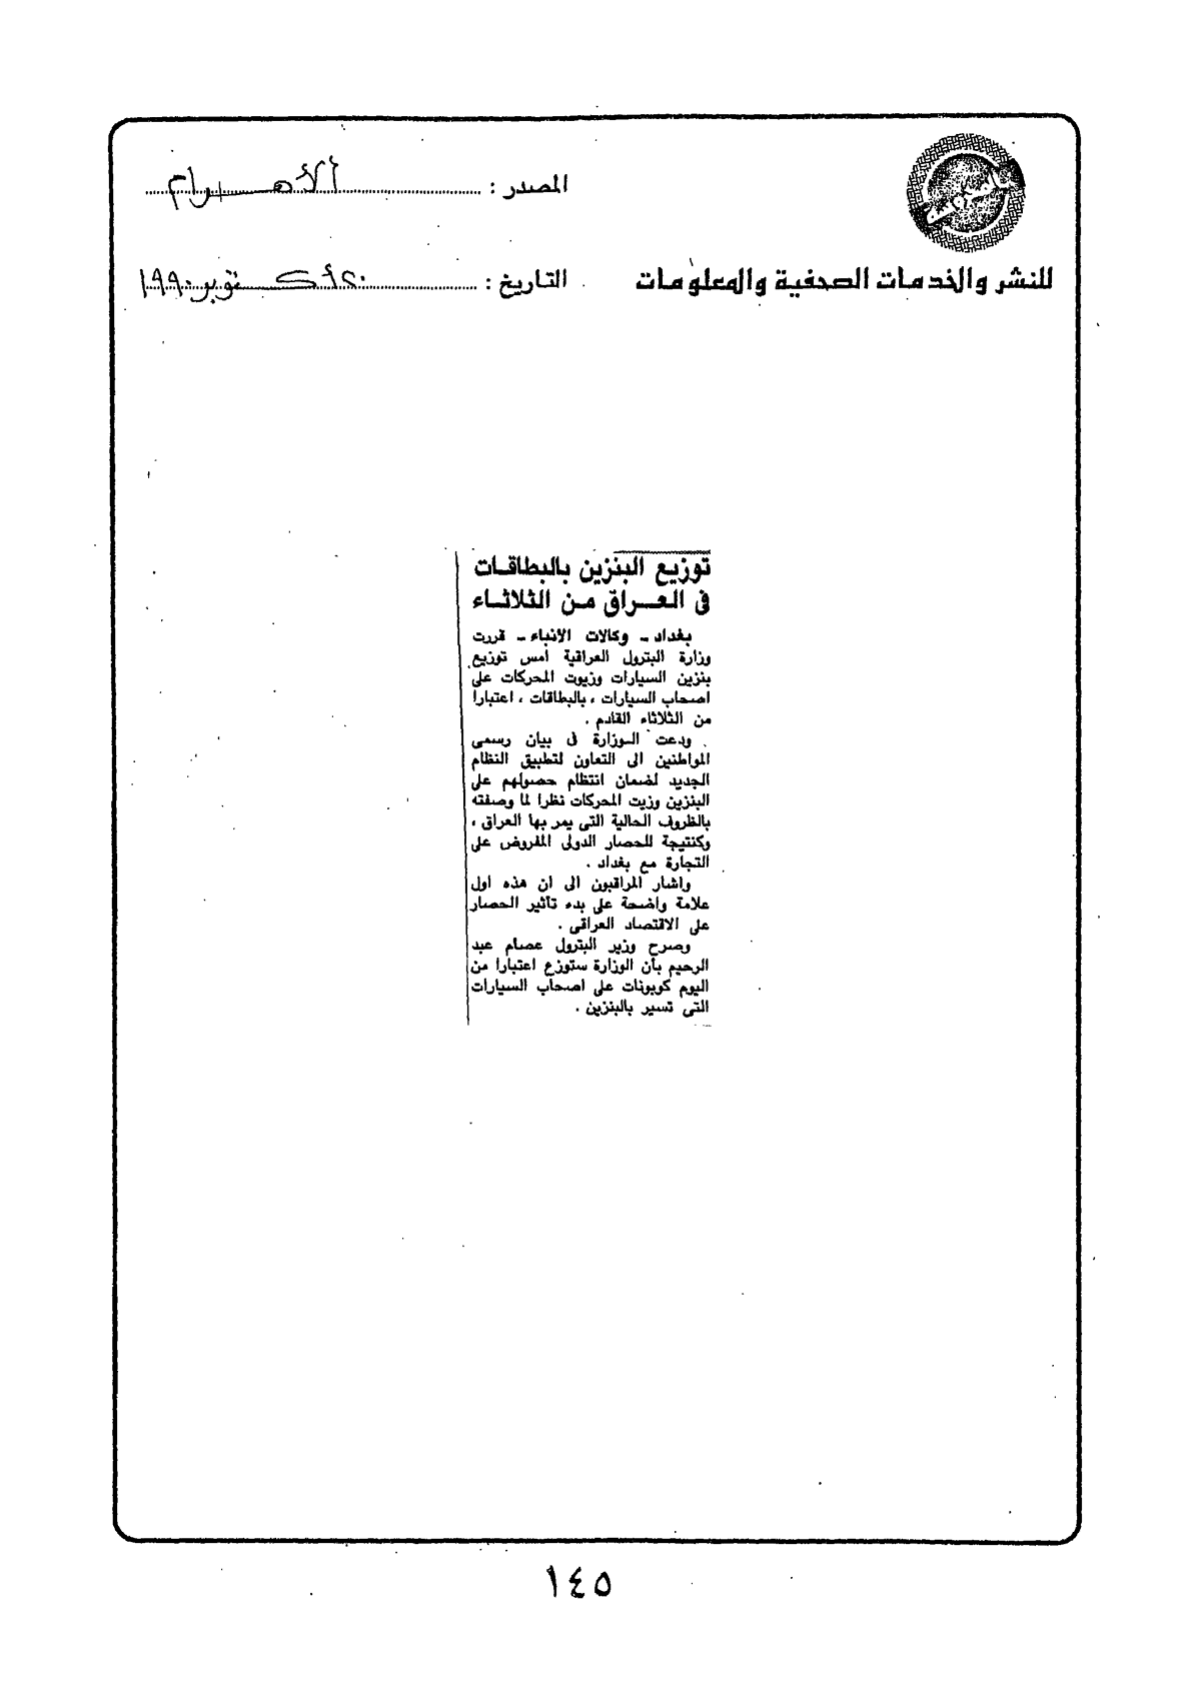 المصدر : الأهرام
للنشر والخدمات الصحفية والمعلومات
التاريخ : ٢٠ أكتوبر ١٩٩٠
توزيع البنزين بالبطاقات
فى العراق من الثلاثاء
بغداد ـ وكالات الانباء ـ قررت
وزارة البترول العراقية امس توزيع
بنزين السيارات وزيوت المحركات على
اصحاب السيارات ، بالبطاقات ، اعتبارا
من الثلاثاء القادم .
ودعت الوزارة فى بيان رسمى
المواطنين الى التعاون لتطبيق النظام
الجديد لضمان انتظام حصولهم على
البنزين وزيت المحركات نظرا لما وصفته
بالظروف الحالية التى يمر بها العراق ،
وكنتيجة للحصار الدولى المفروض على
التجارة مع بغداد .
واشار المراقبون الى ان هذه اول
علامة واضحة على بدء تأثير الحصار
على الاقتصاد العراقى .
وصرح وزير البترول عصام عبد
الرحيم بأن الوزارة ستوزع اعتبارا من
اليوم كوبونات على اصحاب السيارات
التى تسير بالبنزين .
١٤٥